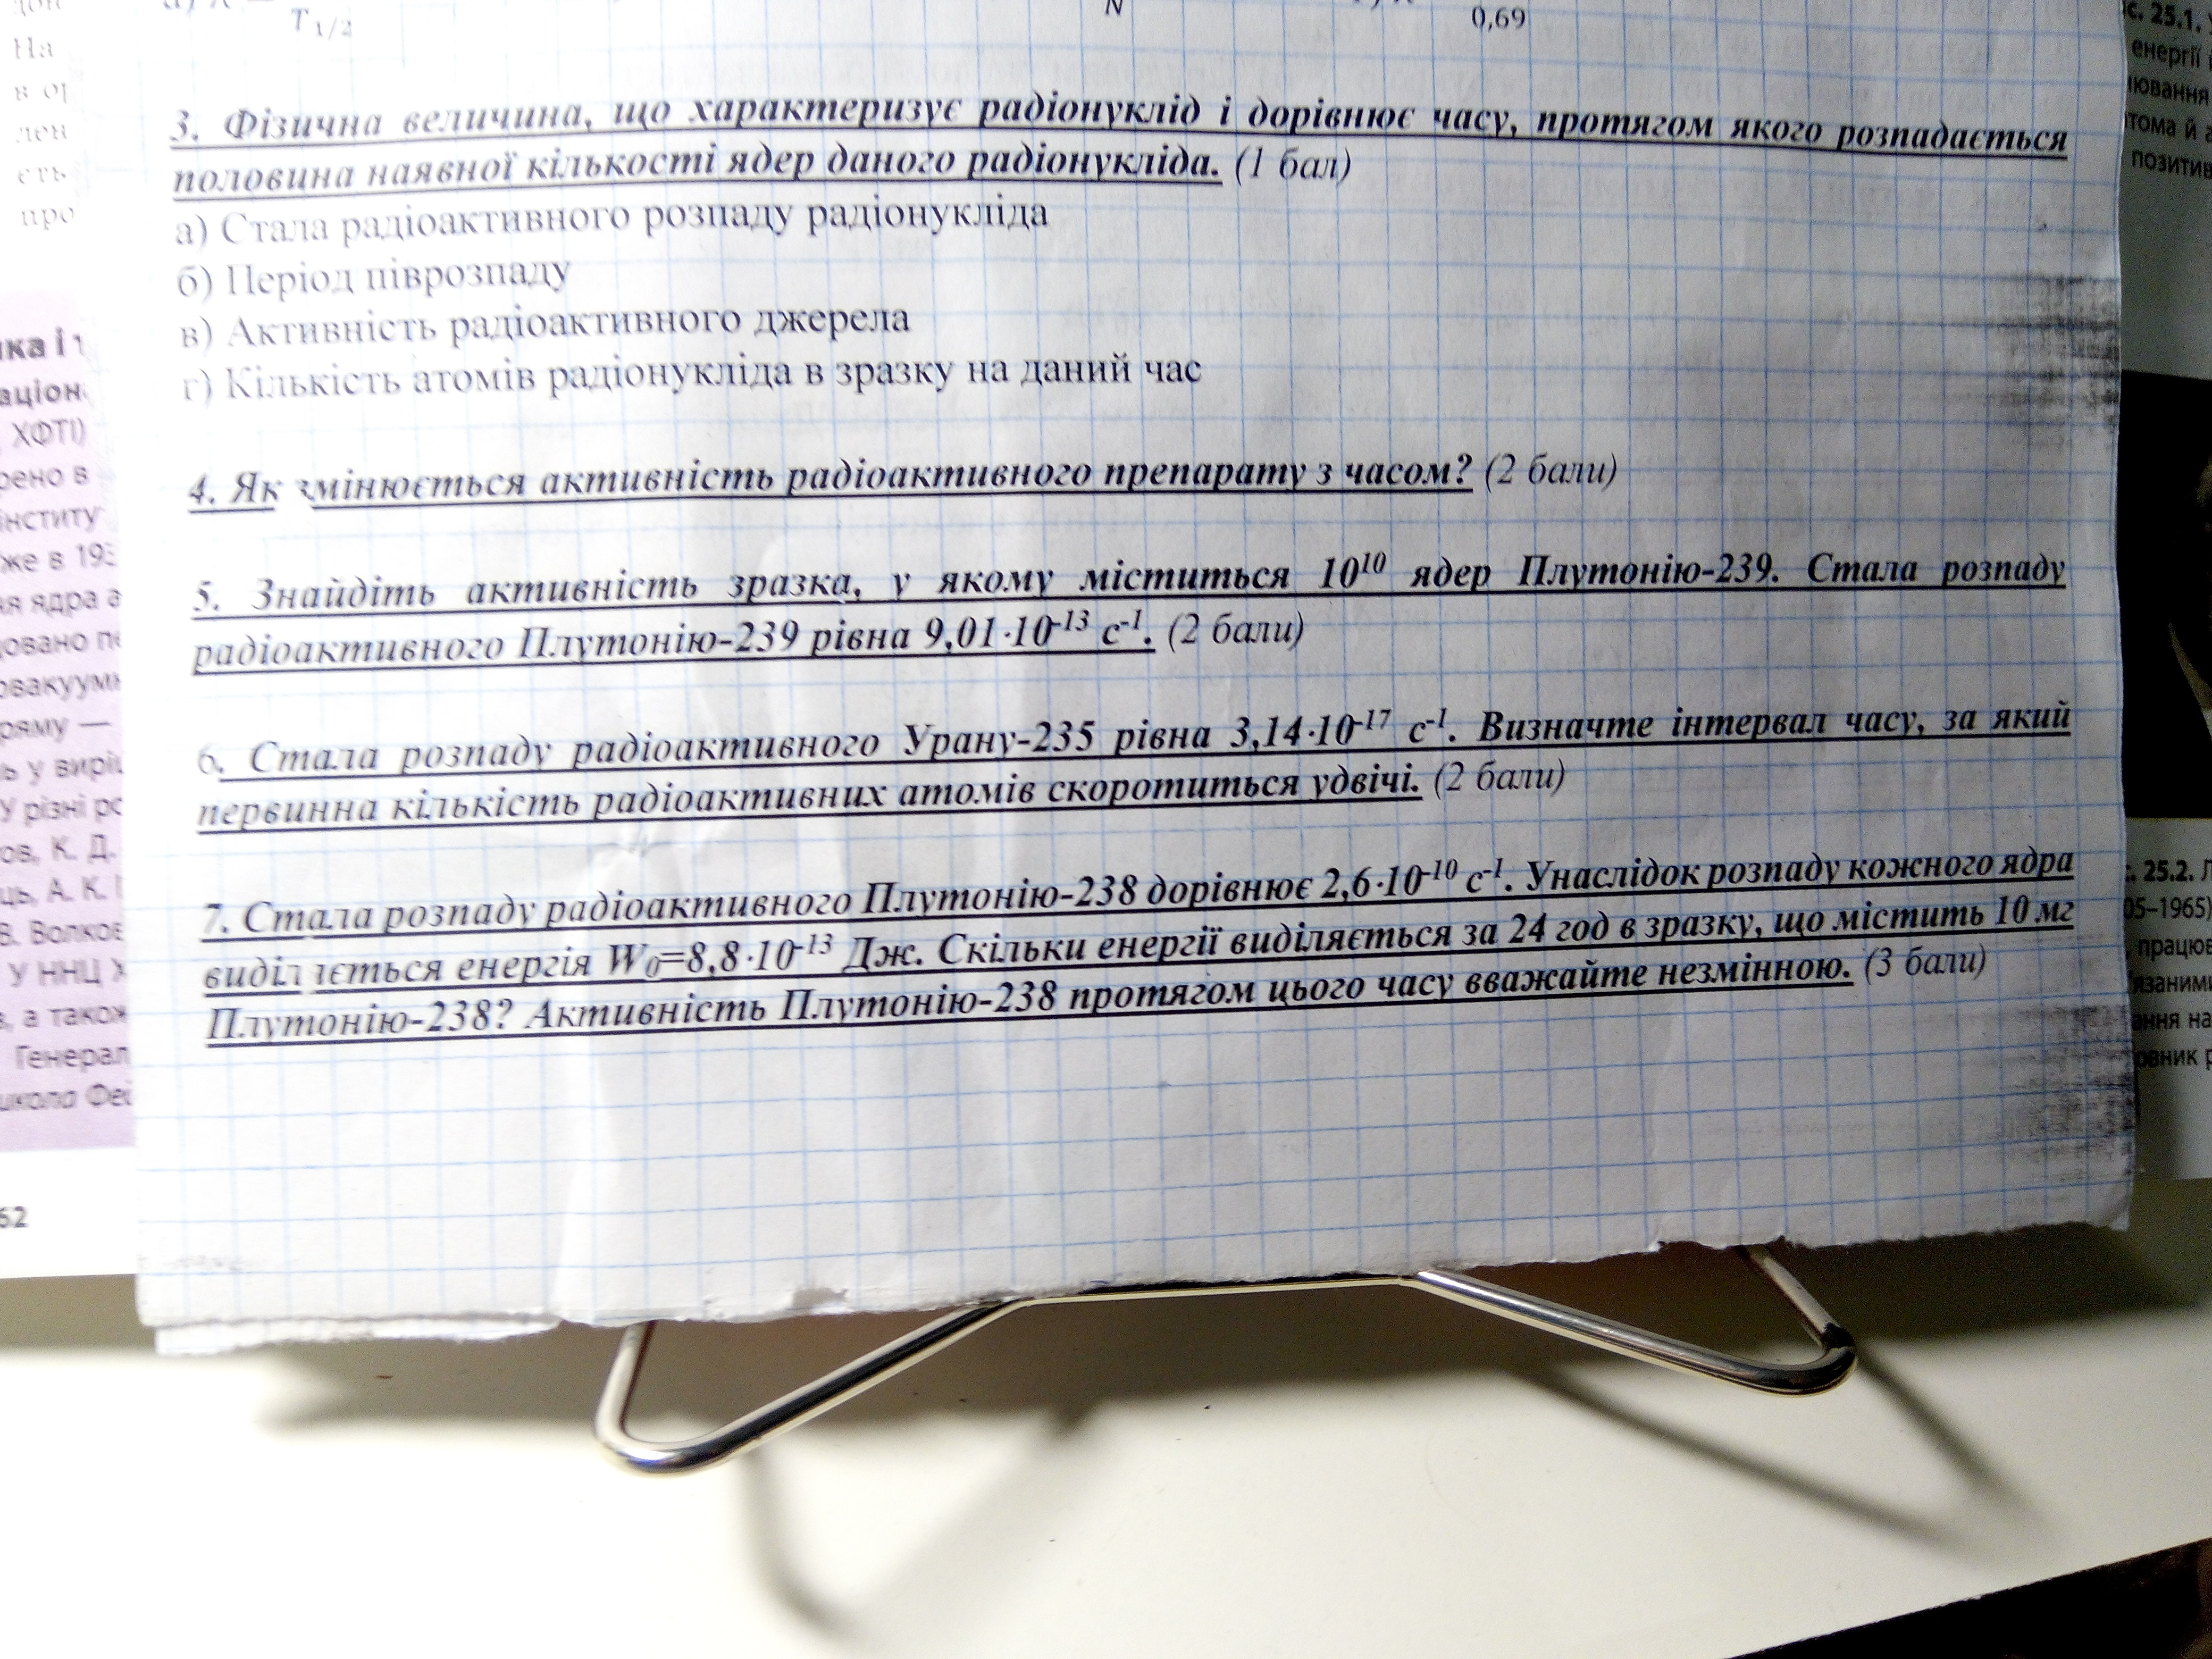 T 1/2
N
0,69
3. Фізична величина, що характеризує радіонуклід і дорівнює часу, протягом якого розпадається
половина наявної кількості ядер даного радіонукліда. (1 бал)
а) Стала радіоактивного розпаду радіонукліда
б) Період піврозпаду
в) Активність радіоактивного джерела
г) Кількість атомів радіонукліда в зразку на даний час
4. Як змінюється активність радіоактивного препарату з часом? (2 бали)
5. Знайдіть активність зразка, у якому міститься 10¹⁰ ядер Плутонію-239. Стала розпаду
радіоактивного Плутонію-239 рівна 9,01·10⁻¹³ с⁻¹. (2 бали)
6. Стала розпаду радіоактивного Урану-235 рівна 3,14·10⁻¹⁷ с⁻¹. Визначте інтервал часу, за який
первинна кількість радіоактивних атомів скоротиться удвічі. (2 бали)
7. Стала розпаду радіоактивного Плутонію-238 дорівнює 2,6·10⁻¹⁰ с⁻¹. Унаслідок розпаду кожного ядра
виділяється енергія W₀=8,8·10⁻¹³ Дж. Скільки енергії виділяється за 24 год в зразку, що містить 10 мг
Плутонію-238? Активність Плутонію-238 протягом цього часу вважайте незмінною. (3 бали)
На
ХФТІ)
же в 193
ряму —
У різні
К. Д.
А. К.
В. Волков
У ННЦ
а також
Генерал
школа
62
с. 25.1.
енергії
с. 25.2.
05–1965)